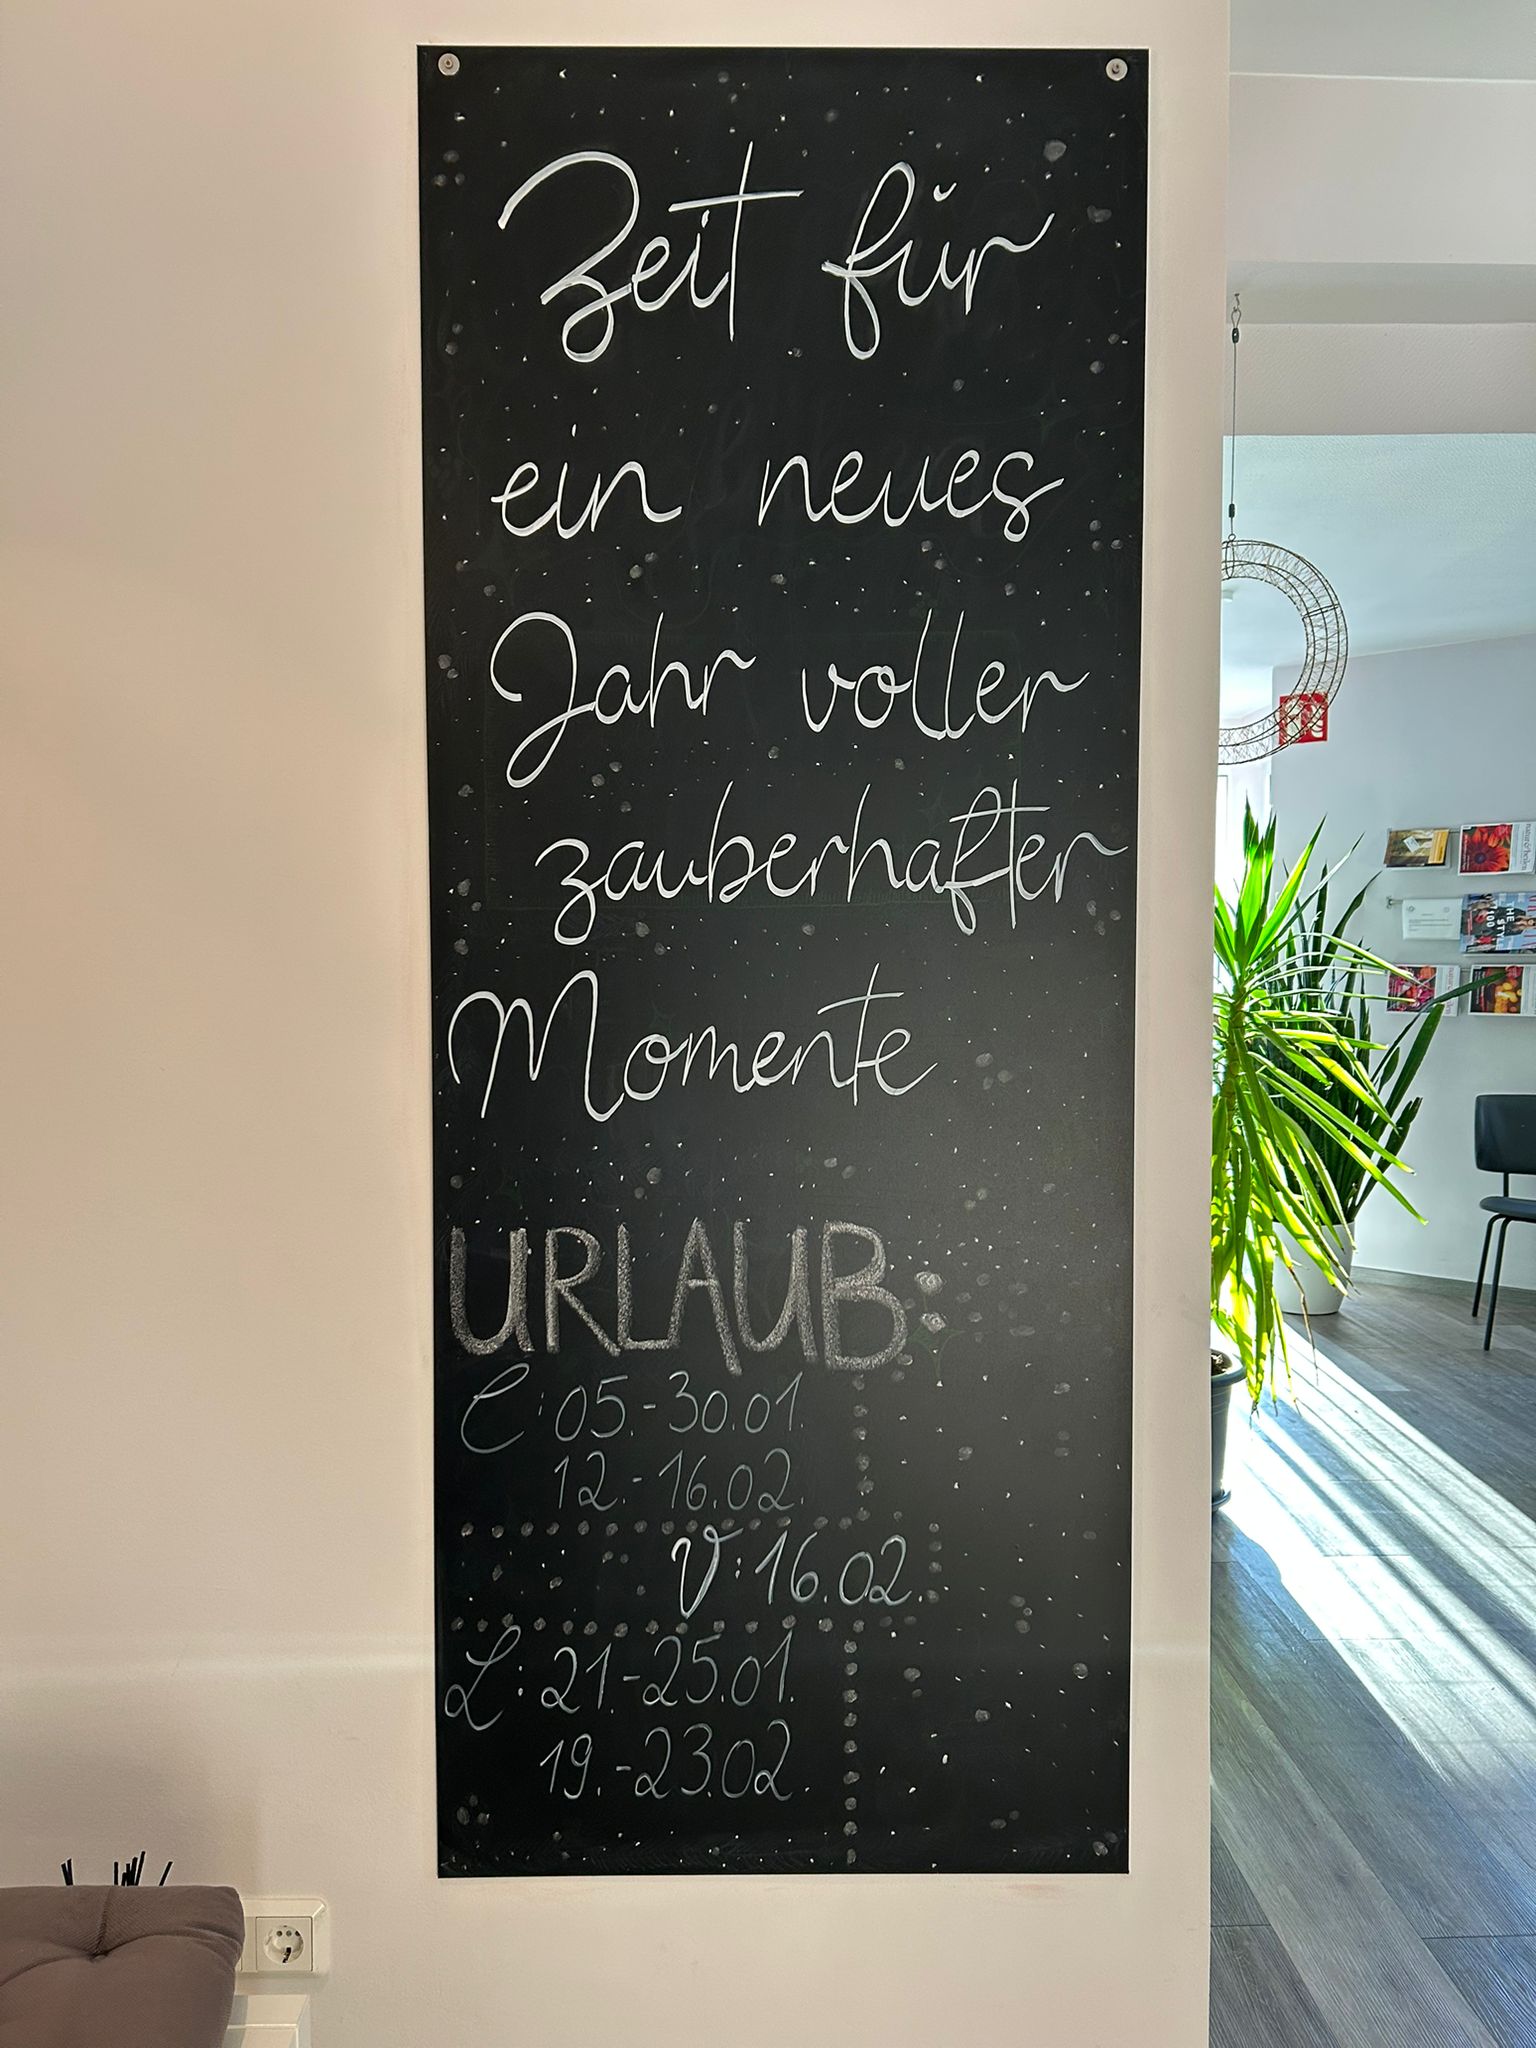 Zeit für
ein neues
Jahr voller
zauberhafter
Momente
URLAUB:
C: 05.-30.01.
12.-16.02.
V: 16.02.
L: 21.-25.01.
19.-23.02.
THE
STYLE
100